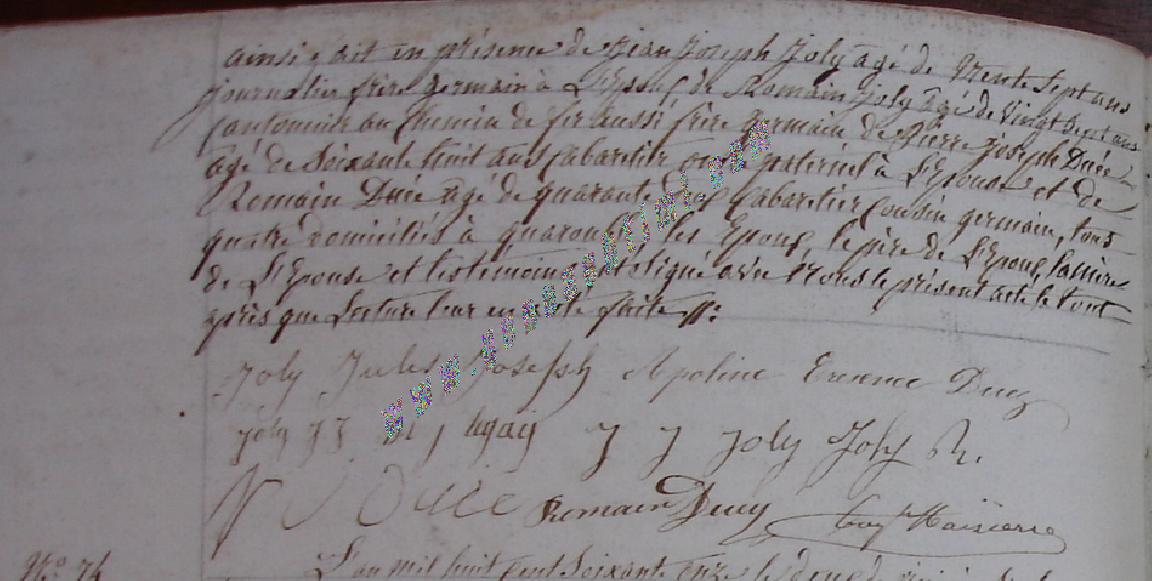 ainsi fait en présence de Jean Joseph Joly agé de trente sept ans
journalier frère germain à L'Epoux, de Romain Joly agé de vingt sept ans
cantonnier au chemin de fer aussi frère germain de Pierre Joseph
agé de soixante huit ans Cabaretier paternel à L'Epouse et de
Romain agé de quarante Cabaretier Cousin germain, tous
quatre domiciliés à quaregnon, les Epoux, le père de L'Epoux, la mère
de L'Epouse et les témoins ont signé avec Nous le présent acte le tout
après que Lecture leur en a été faite
Joly Jules Joseph Apoline Ducy
Joly J J J J Joly Joly R.
Romain Ducy
N° 74 L'an mil huit cent Soixante onze le